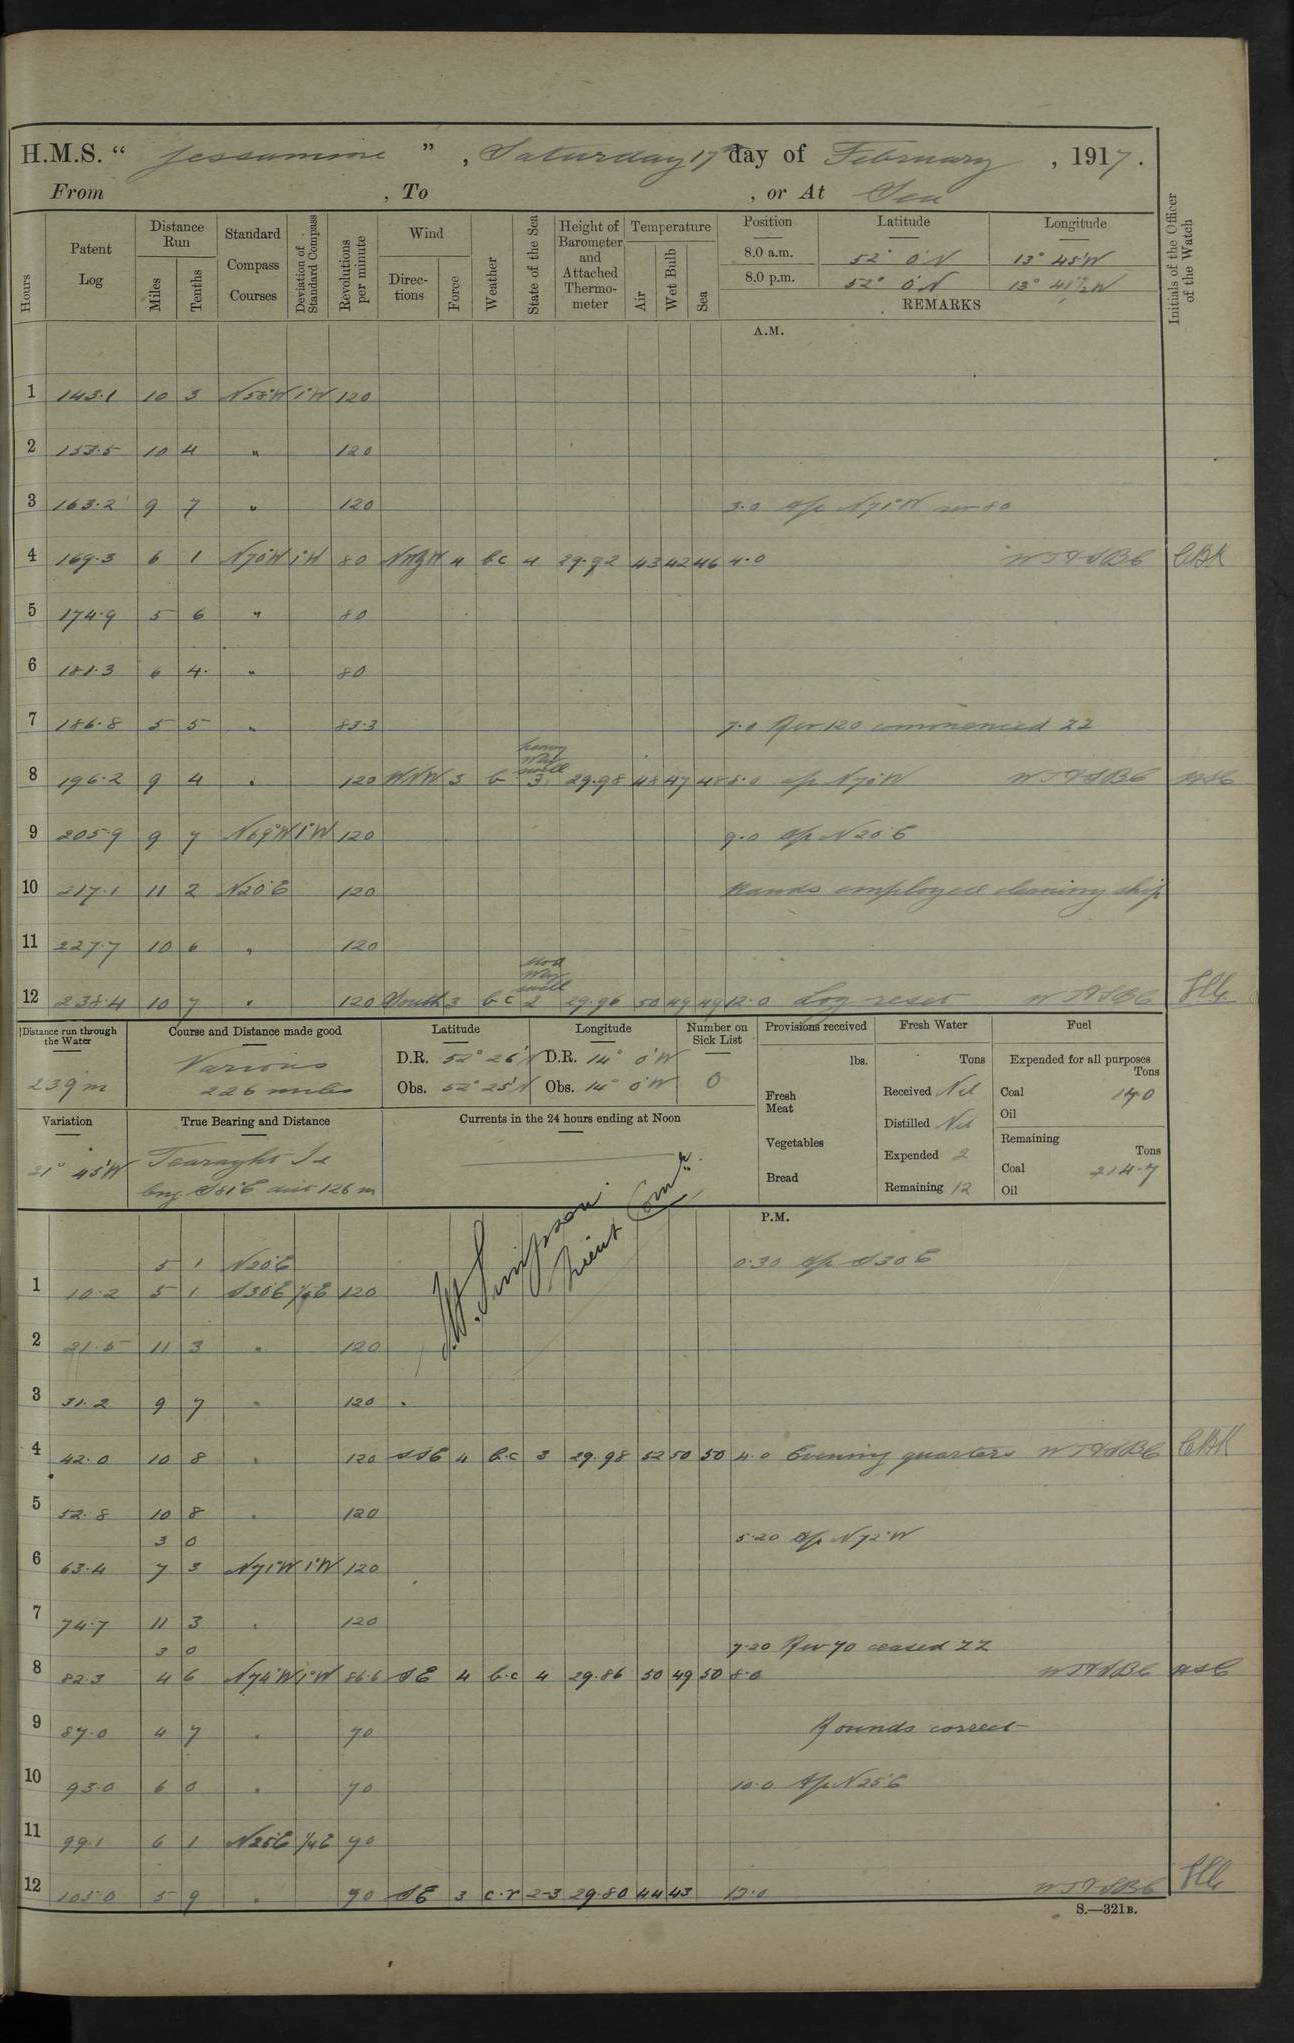 H.M.S. “ Jessamine ” , Saturday 17th day of February , 1917.
From , To , or At Sea
Hours
Patent Log
Distance Run
Miles
Tenths
Standard Compass Courses
Deviation of Standard Compass
Revolutions per minute
Wind
Directions
Force
Weather
State of the Sea
Height of Barometer and Attached Thermometer
Temperature
Air
Wet Bulb
Sea
Position Latitude Longitude
8.0 a.m. 52° 0'N 13° 45'W
8.0 p.m. 52° 0'N 13° 41½'W
REMARKS
Initials of the Officer of the Watch
A.M.
1 143.1 10 3 N58°W 1°W 120
2 153.5 10 4 " 120
3 163.2 9 7 " 120 3.0 A/c N71°W rev 80
4 169.3 6 1 N70°W 1°W 80 NWbyW 4 b.c 4 29.92 43 42 46 4.0
5 174.9 5 6 " 80
6 181.3 6 4 " 80
7 186.8 5 5 " 83.3 7.0 Rev 120 commenced ZZ
heavy Wly swell
8 196.2 9 4 " 120 WNW 3 b 3 29.98 48 47 48 8.0 a/c N70°W
9 205.9 9 7 N69°W 1°W 120 9.0 A/c N20°E
10 217.1 11 2 N20°E 120 Hands employed cleaning ship
11 227.7 10 6 " 120
mod Wly swell
12 238.4 10 7 " 120 South 3 b.c 2 29.96 50 49 49 12.0 Log reset
Distance run through the Water
239 m
Course and Distance made good
Various
226 miles
Latitude
D.R. 52° 26'N
Obs. 52° 25'N
Longitude
D.R. 14° 0'W
Obs. 14° 0'W
Number on Sick List
0
Provisions received
lbs.
Fresh Meat
Vegetables
Bread
Fresh Water
Tons
Received Nil
Distilled Nil
Expended 2
Remaining 12
Fuel
Expended for all purposes
Tons
Coal 17.0
Oil
Remaining
Tons
Coal 214.7
Oil
Variation
21° 45'W
True Bearing and Distance
Tearaght Id
brg. S81°E dist 126 m
Currents in the 24 hours ending at Noon
Simpson
Lieut Comdr.
P.M.
5 1 N20°E 0.30 A/c S30E
1 10.2 5 1 S30E 120
2 21.5 11 3 " 120
3 31.2 9 7 " 120
4 42.0 10 8 " 120 SSE 4 b.c 3 29.98 52 50 50 4.0 Evening quarters
5 52.8 10 8 " 120
3 0 5.20 A/c N72°W
6 63.4 7 3 N71°W 1°W 120
7 74.7 11 3 " 120
3 0 7.20 Rev 70 ceased ZZ
8 82.3 4 6 N74°W 1°W 86.6 SE 4 b.c 4 29.86 50 49 50 8.0
9 87.0 4 7 " 70 Rounds correct
10 93.0 6 0 " 70 10.0 A/c N25°E
11 99.1 6 1 N25°E ¼E 70
12 105.0 5 9 " 70 SE 3 c.r 2-3 29.80 44 43 12.0
S.—321B.